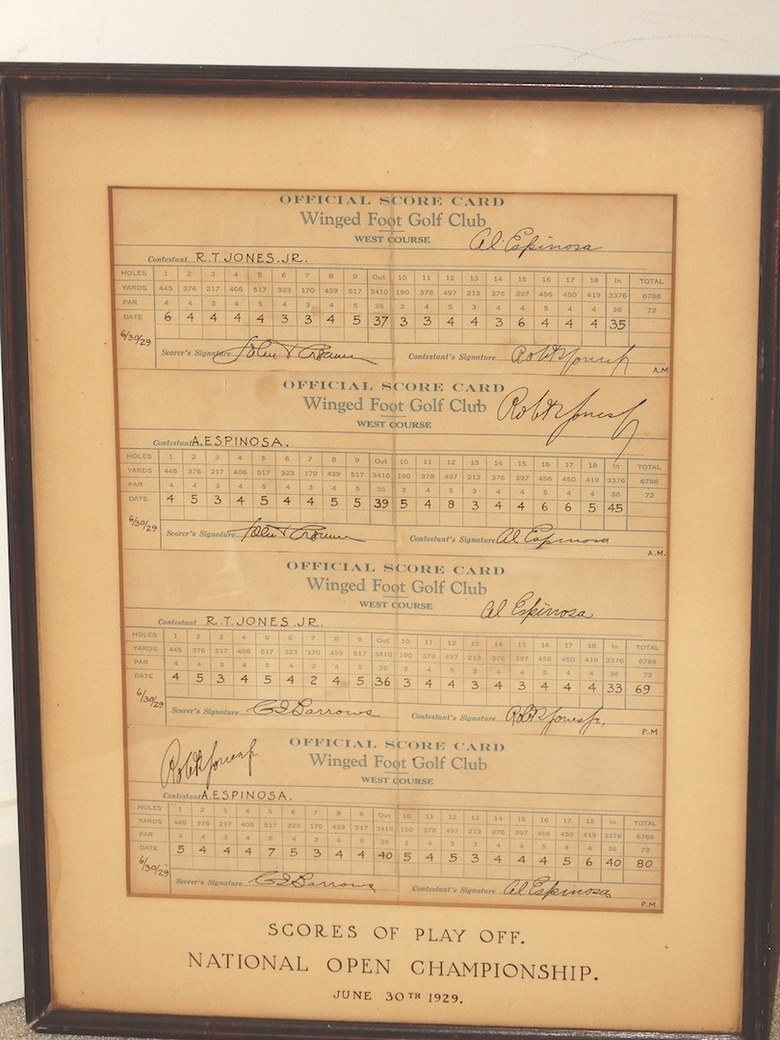 OFFICIAL SCORE CARD
Winged Foot Golf Club
WEST COURSE
Al Espinosa
Contestant R.T. JONES. JR.
HOLES 1 2 3 4 5 6 7 8 9 Out 10 11 12 13 14 15 16 17 18 In TOTAL
YARDS 445 376 217 406 517 323 170 439 517 3410 190 378 497 213 376 397 456 450 419 3376 6786
PAR 4 4 3 4 5 4 3 4 5 36 3 4 5 3 4 4 4 4 36 72
DATE 6 4 4 4 4 3 3 4 5 37 3 3 4 4 3 6 4 4 4 35
6/30/29
Scorer's Signature
Contestant's Signature Robt T Jones Jr
A.M
OFFICIAL SCORE CARD
Winged Foot Golf Club
WEST COURSE
Robt T Jones Jr
Contestant A. ESPINOSA.
HOLES 1 2 3 4 5 6 7 8 9 Out 10 11 12 13 14 15 16 17 18 In TOTAL
YARDS 445 376 217 406 517 323 170 439 517 3410 190 378 497 213 376 397 456 450 419 3376 6786
PAR 4 4 3 4 5 4 3 4 5 36 3 4 5 3 4 4 4 4 36 72
DATE 4 5 3 4 5 4 4 5 5 39 5 4 8 3 4 4 6 6 5 45
6/30/29
Scorer's Signature
Contestant's Signature Al Espinosa
A.M.
OFFICIAL SCORE CARD
Winged Foot Golf Club
WEST COURSE
Al Espinosa
Contestant R.T. JONES. JR.
HOLES 1 2 3 4 5 6 7 8 9 Out 10 11 12 13 14 15 16 17 18 In TOTAL
YARDS 445 376 217 406 517 323 170 439 517 3410 190 378 497 213 376 397 456 450 419 3376 6786
PAR 4 4 3 4 5 4 3 4 5 36 3 4 5 3 4 4 4 4 36 72
DATE 4 5 3 4 5 4 2 4 5 36 3 4 4 3 4 3 4 4 4 33 69
6/30/29
Scorer's Signature C S Barrows
Contestant's Signature Robt T Jones Jr.
P.M
OFFICIAL SCORE CARD
Winged Foot Golf Club
WEST COURSE
Robt T Jones Jr
Contestant A. ESPINOSA.
HOLES 1 2 3 4 5 6 7 8 9 Out 10 11 12 13 14 15 16 17 18 In TOTAL
YARDS 445 376 217 406 517 323 170 439 517 3410 190 378 497 213 376 397 456 450 419 3376 6786
PAR 4 4 3 4 5 4 3 4 5 36 3 4 5 3 4 4 4 4 36 72
DATE 5 4 4 4 7 5 3 4 4 40 5 4 5 3 4 4 4 5 6 40 80
6/30/29
Scorer's Signature C S Barrows
Contestant's Signature Al Espinosa
P.M
SCORES OF PLAY OFF.
NATIONAL OPEN CHAMPIONSHIP.
JUNE 30TH 1929.